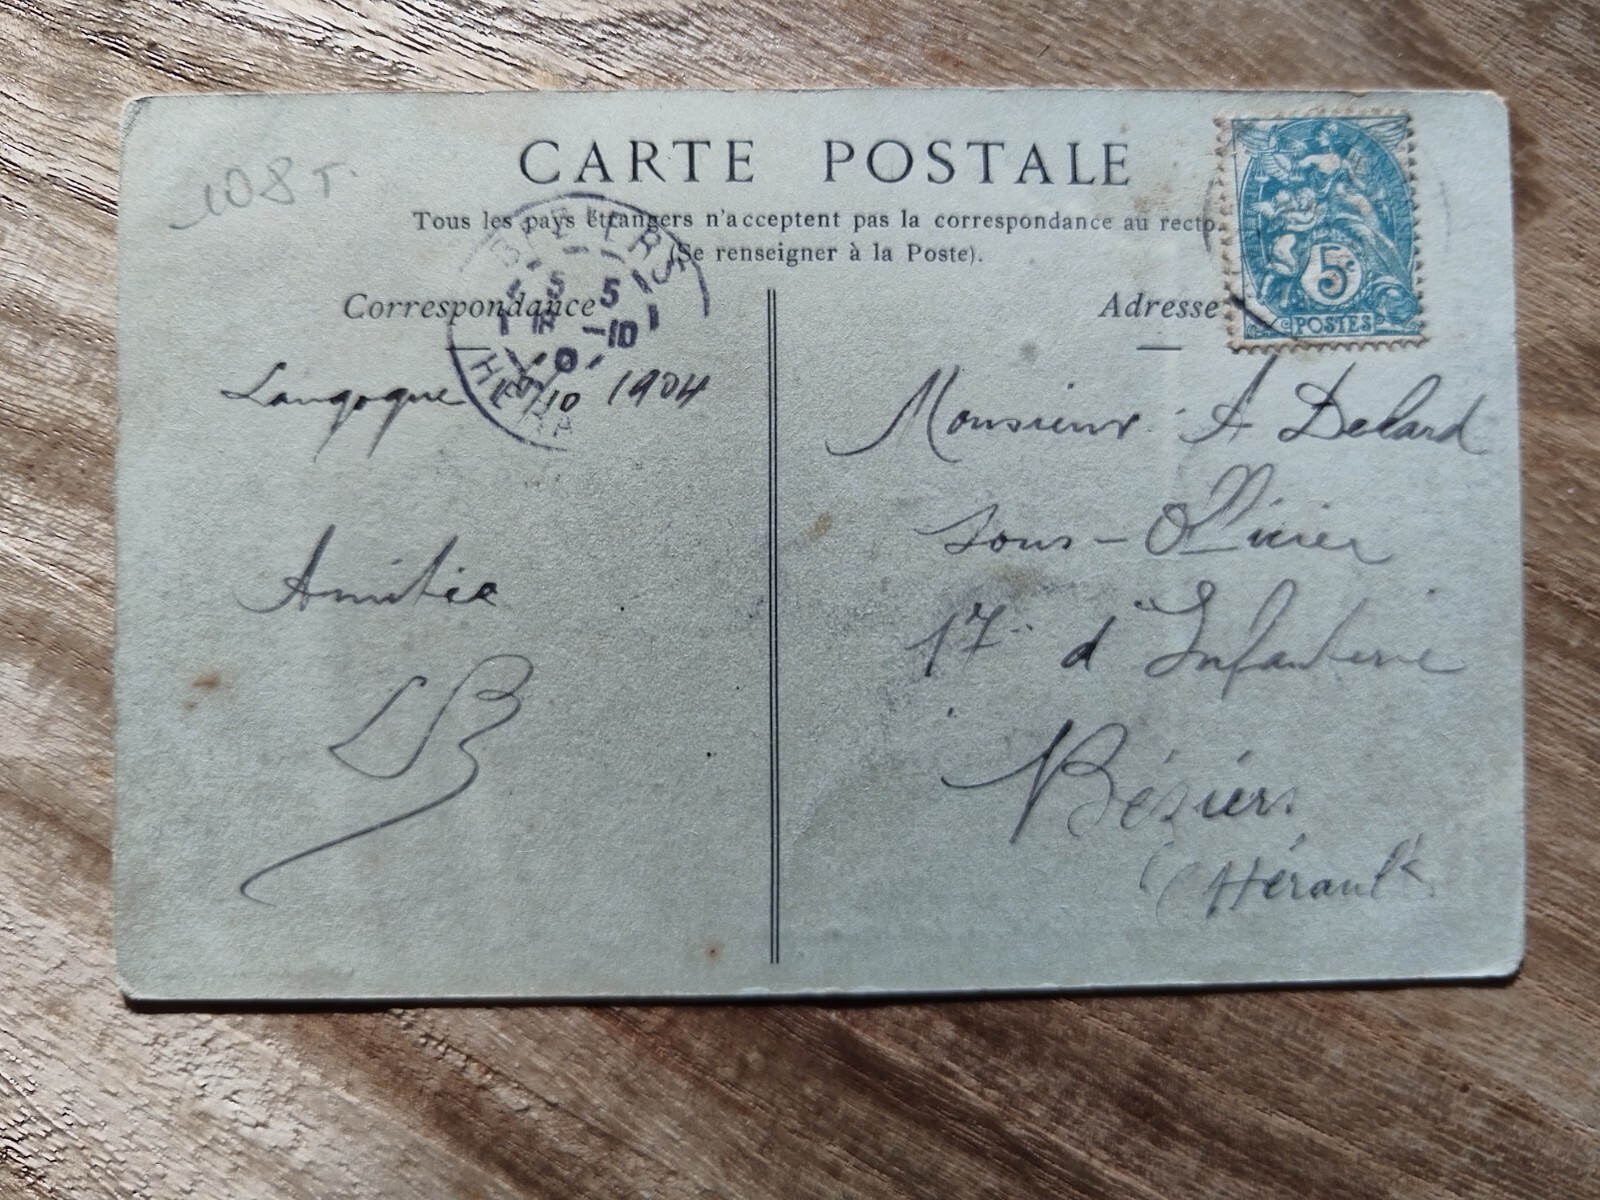 108 T.
CARTE POSTALE
Tous les pays étrangers n'acceptent pas la correspondance au recto.
(Se renseigner à la Poste).
Correspondance
Adresse
5c
POSTES
BEZIERS
5 5
-10
HERA
Langogne 1904
Amitié
LB
Monsieur A Delard
Sous-Officier
17 d'Infanterie
Béziers
(Hérault